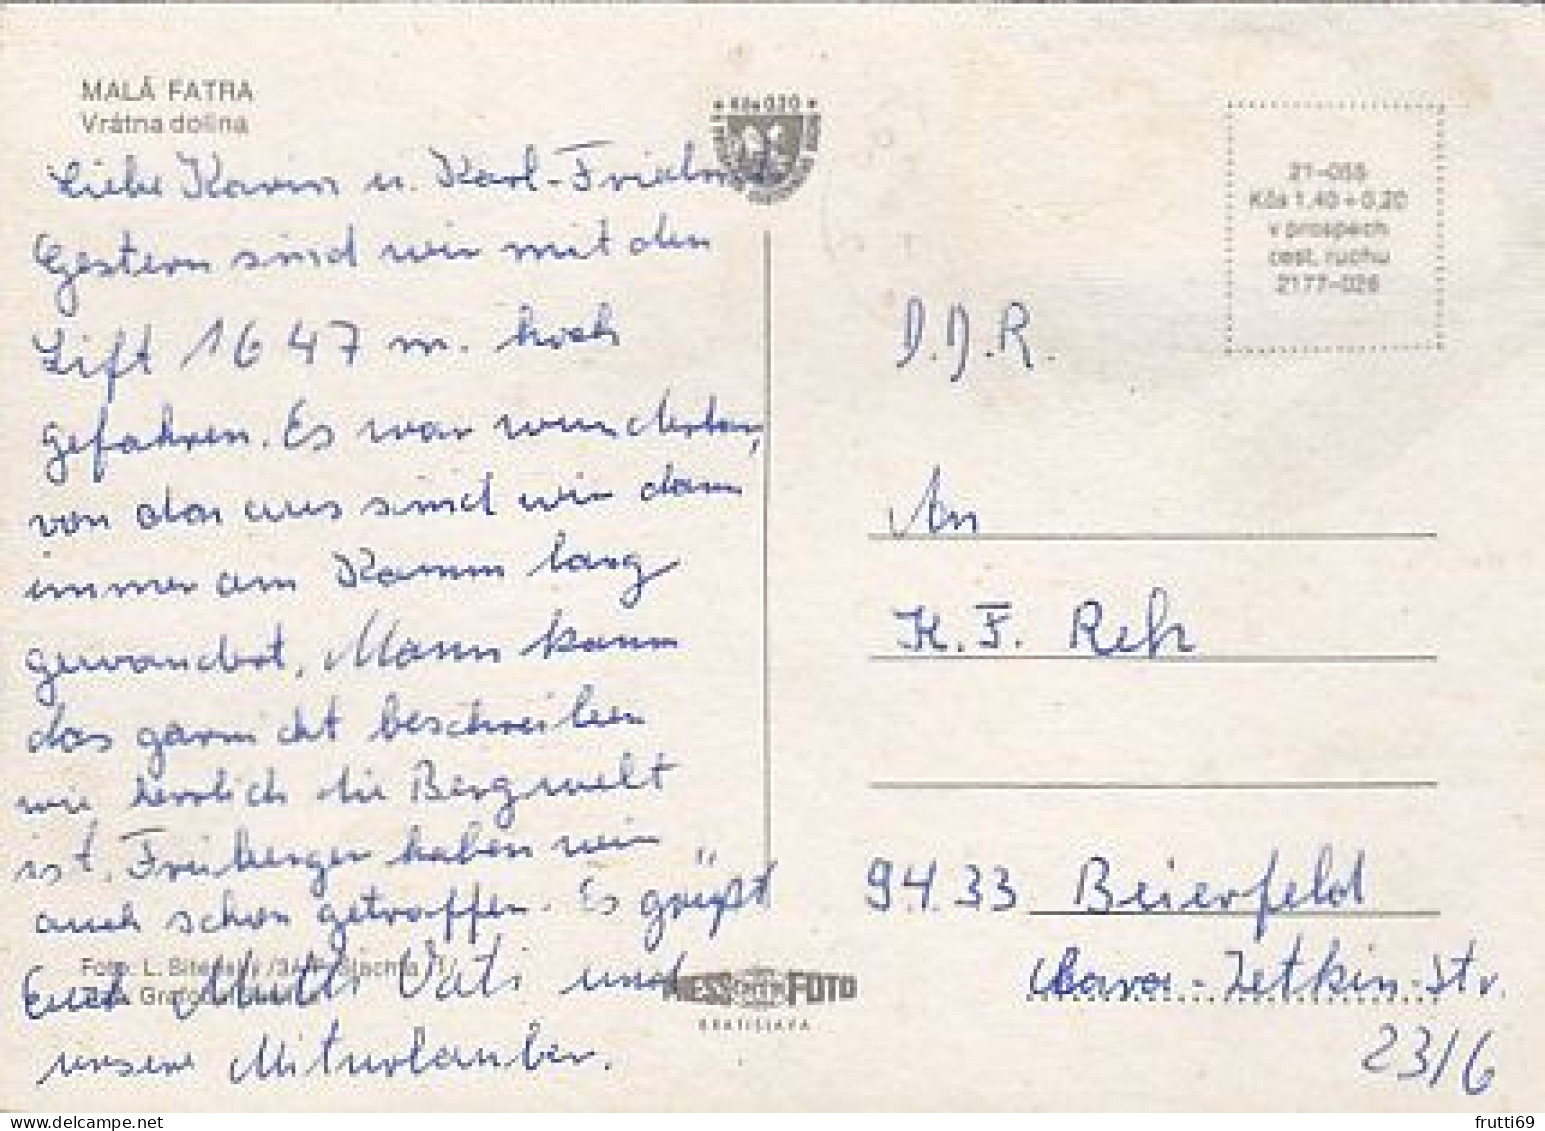 MALÁ FATRA
Vrátna dolina
Kčs 0,20
21-055
Kčs 1,40 + 0,20
v prospech
cest. ruchu
2177-026
Liebe Karin u. Karl-Friedrich
Gestern sind wir mit den
Lift 1647 m. hoch
gefahren. Es war wunderbar,
von da aus sind wir dann
immer am Kamm lang
gewandert. Mann kann
das garnicht beschreiben
wie herrlich die Bergwelt
ist. Freiberger haben wir
auch schon getroffen. Es grüßt
Euch Mutti Vati und
unsere Miturlauber.
D.D.R.
An
K. F. Reh
9433 Beierfeld
Clara-Zetkin-Str.
23/6
Foto: L.
PRESSFOTO
BRATISLAVA
frutti69